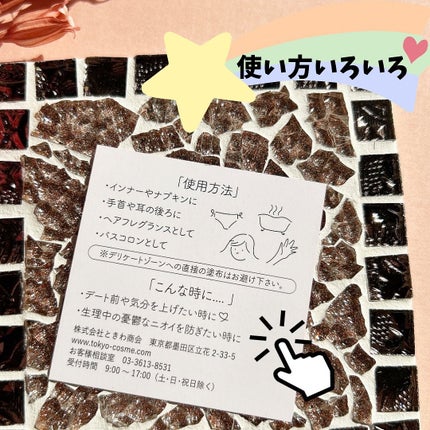 使い方いろいろ
「使用方法」
・インナーやナプキンに
・手首や耳の後ろに
・ヘアフレグランスとして
・バスコロンとして
※デリケートゾーンへの直接の塗布はお避け下さい。
「こんな時に.... 」
・デート前や気分を上げたい時に♡
・生理中の憂鬱なニオイを防ぎたい時に
株式会社ときわ商会 東京都墨田区立花2-33-5
www.tokyo-cosme.com
お客様相談室 03-3613-8531
受付時間 9:00～17:00（土・日・祝日除く）